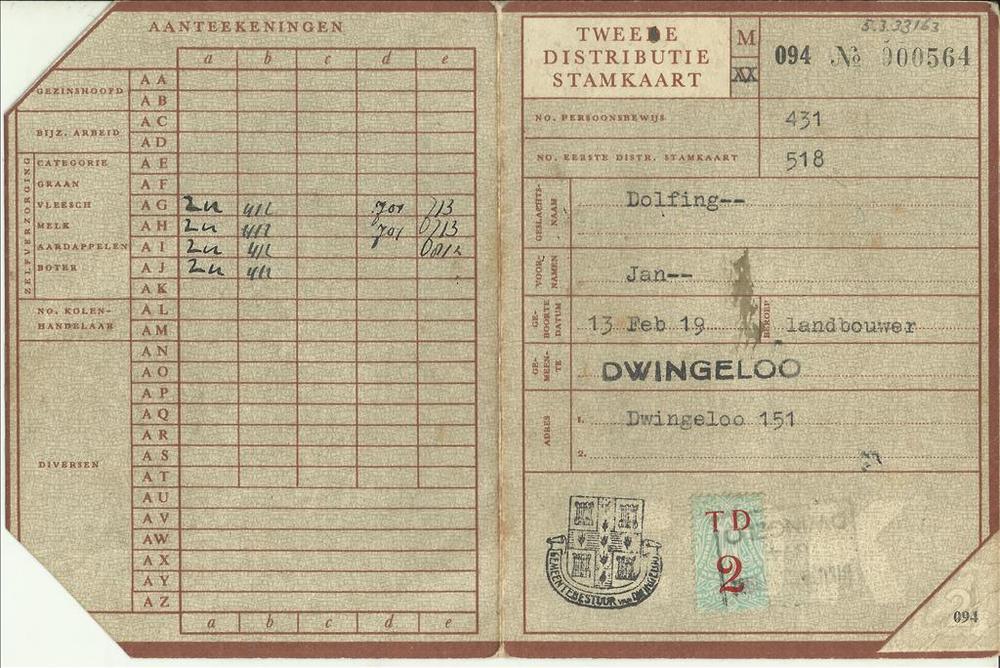 AANTEEKENINGEN
a b c d e
GEZINSHOOFD
A A
A B
BIJZ. ARBEID
A C
A D
ZELFVERZORGING
CATEGORIE
A E
GRAAN
A F
VLEESCH
A G
MELK
A H
AARDAPPELEN
A I
BOTER
A J
A K
NO. KOLEN-
HANDELAAR
A L
A M
DIVERSEN
A N
A O
A P
A Q
A R
A S
A T
A U
A V
A W
A X
A Y
A Z
a b c d e
TWEEDE
DISTRIBUTIE
STAMKAART
M
5.3.33163
094 № 000564
NO. PERSOONSBEWIJS 431
NO. EERSTE DISTR. STAMKAART 518
GESLACHTS-
NAAM
Dolfing--
VOOR-
NAMEN
Jan--
GE-
BOORTE
DATUM
13 Feb 19
BEROEP
landbouwer
GE-
MEEN-
TE
DWINGELOO
ADRES
1. Dwingeloo 151
2.
GEMEENTEBESTUUR van DWINGELOO
TD
2
094